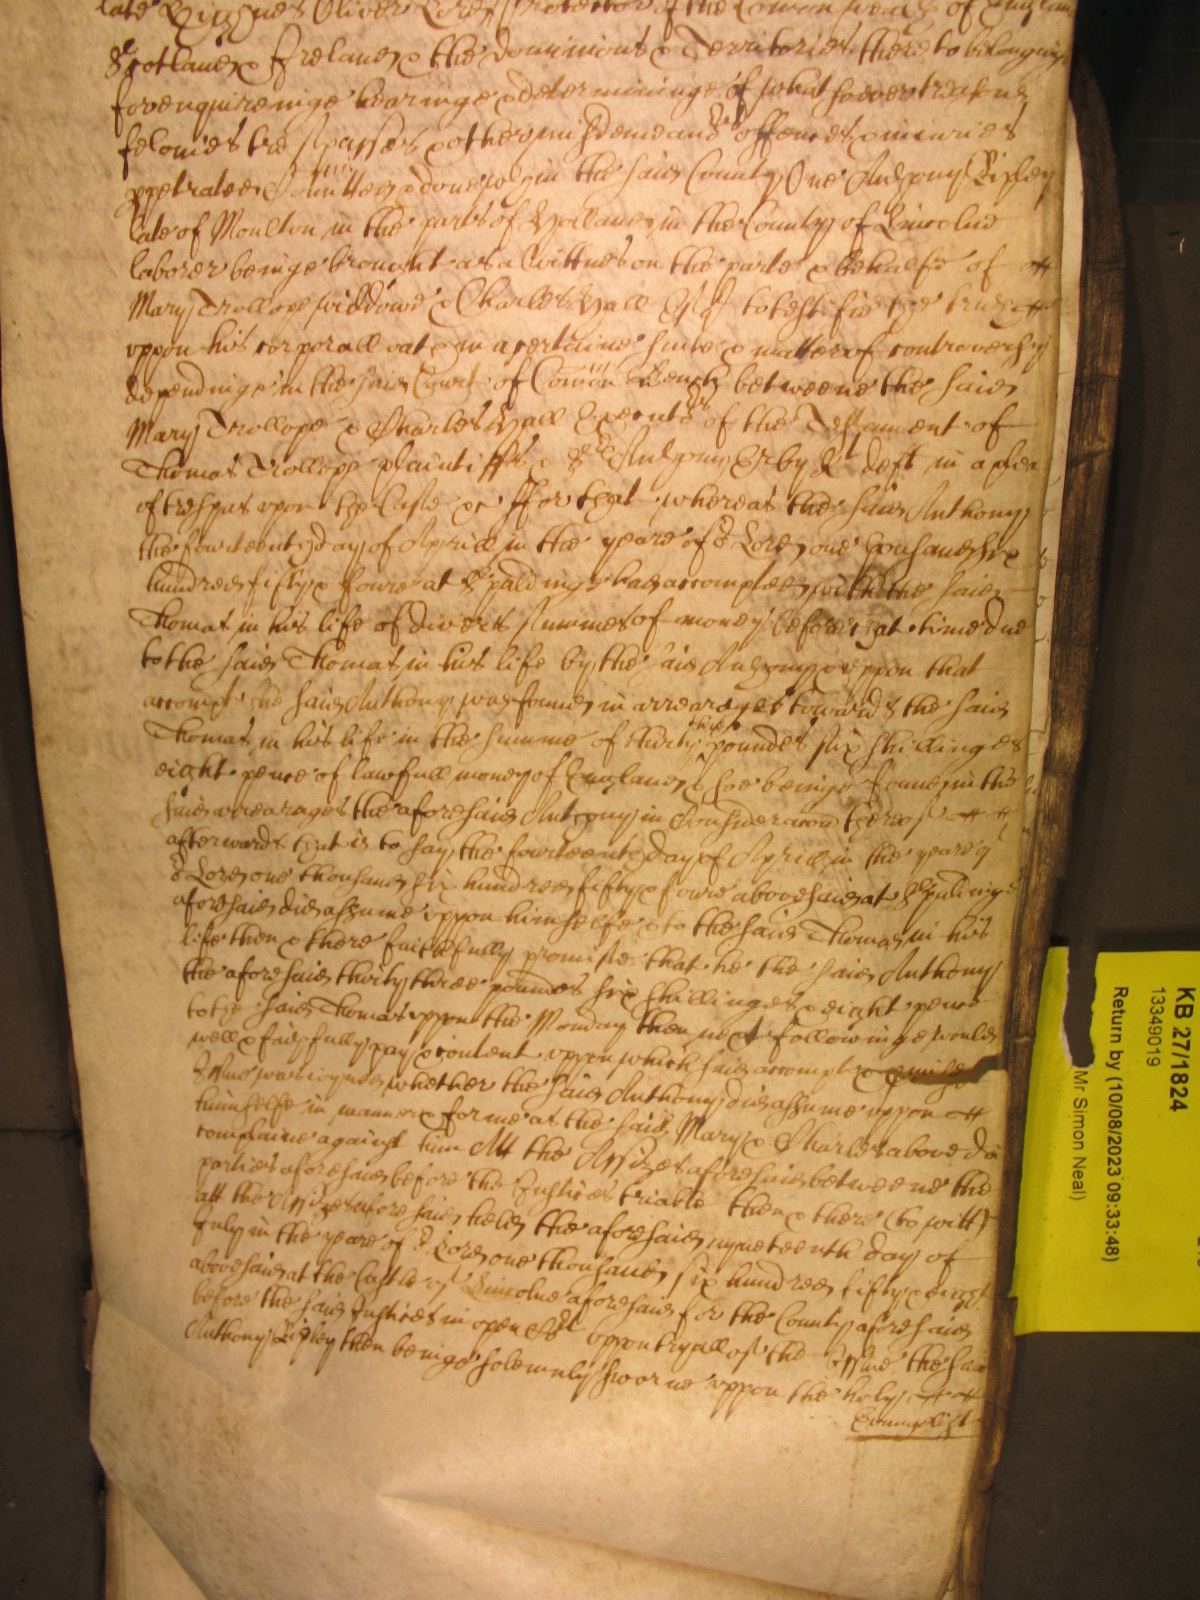 late Highnes Oliver Lord Protector of the Comon wealth of England
Scotland & Ireland & the dominions & Territories thereto belonginge
for enquireinge hearinge & determininge of whatsoever treasons
felonies trespasses & other misdemeanors offences & iniuries
ppetrated Comitted & done wthin the said County One Anthony Risley
late of Moulton in the parts of Holland in the County of Lincolne
laborer beinge brought as a wittnes on the parte & behalfe of
Mary Trollope widdowe & Charles Hall to testifie the truth
uppon his corporall oath in a certaine suite & matter of controversy
dependinge in the said Court of Comon Bench betweene the said
Mary Trollope & Charles Hall Executors of the Testament of
Thomas Trollope plaintiffs & Sr Anthony Irby Kt deft in a plea
of trespas upon the Case &c ffor that whereas the said Anthony
the fowrteenth day of Aprill in the yeare of or Lord one thousand six
hundred fifty & foure at Spaldinge had accompted with the said
Thomas in his life of divers summes of money before that time due
to the said Thomas in his life by the said Anthony & uppon that
accompt the said Anthony was found in arrearages towards the said
Thomas in his life in the summe of thirty three poundes six shillinges
eight pence of lawfull money of England & soe beinge found in the
said arrearages the aforesaid Anthony in Consideracon thereof
afterwards that is to say the fowrteenth day of Aprill in the yeare of
or Lord one thousand six hundred fifty & foure abovesaid at Spaldinge
aforesaid did assume uppon himselfe & to the said Thomas in his
life then & there faithfully promise that he the said Anthony
the aforesaid thirty three poundes six shillinges & eight pence
to the said Thomas uppon the Monday then next followinge would
well & faithfully pay & content uppon which said accompt &
Issue was ioyned whether the said Anthony did assume uppon
himselfe in manner & forme as the said Mary & Charles above did
complaine against him Att the Assizes aforesaid betweene the
parties aforesaid before the Justices triable then & there (to witt)
att the Assizes aforesaid held the aforesaid nyneteenth day of
July in the yeare of or Lord one thousand six hundred fifty & eight
abovesaid at the Castle of Lincolne aforesaid for the County aforesaid
before the said Justices in open Court uppon tryall of the Issue the said
Anthony Risley then beinge solemnly sworne uppon the holy
Evangelist
KB 27/1824
13349019
Return by (10/08/2023 09:33:48)
Mr Simon Neal)